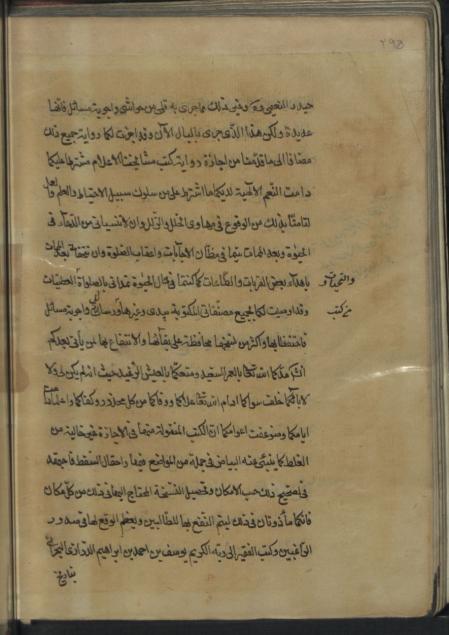 ٢٩٥
حيدر النعيمي وغير ذلك مما جرى به قلمي من حواشي واجوبة مسائل فانها
عديدة ولكن هذا الذي جرى بالبال الآن وقد اجزت لكما رواية جميع ذلك
مضافا الى ما قدمنا من اجازة رواية كتب مشايخنا الاعلام مشترطا عليكما
دامت النعم الالهية لديكما ما اشترط علي من سلوك سبيل الاحتياط والعلم والعمل
لتأمنا بذلك من الوقوع في مهاوي الخلل والزلل وان لا تنسياني من الدعاء في
الحيوة وبعد الممات سيما في مظان الاجابات واعقاب الصلوة وان
باهداء بعض القربات والطاعات كما كنتما في حال الحيوة
والتحيات
وقد اوصيت لكما بجميع مصنفاتي المكتوبة بيدي وغيرها ورسائلي واجوبة مسائل
من كتب
فانتفعا بها واكثرا من نسخها محافظة على بقائها والانتفاع بها لمن يأتي بعدكم
الله تعالى بالعمر السعيد ومتعكما بالعيش الرغيد حيث انه لم يكن لي ولا
لآبائكما خلف سواكما ادام الله تعالى علاكما ووقاكما من كل محذور وكفاكما واعلما
ايامكما وضوعفت اعوامكما ان الكتب المنقولة منها في الاجازة غير خالية من
الغلط كما ينبئ عنه البياض في جملة من المواضع فيها واحتمال السقط فاجهدا
في تصحيح ذلك حسب الامكان وتحصيل النسخة المحتاج اليها في ذلك من كل مكان
فانكما مأذونان في ذلك ليتم النفع بها للطالبين ويعظم الوقع لها في صدور
الراغبين وكتب الفقير الى ربه الكريم يوسف بن احمد بن ابراهيم الدرازي البحراني
بتاريخ